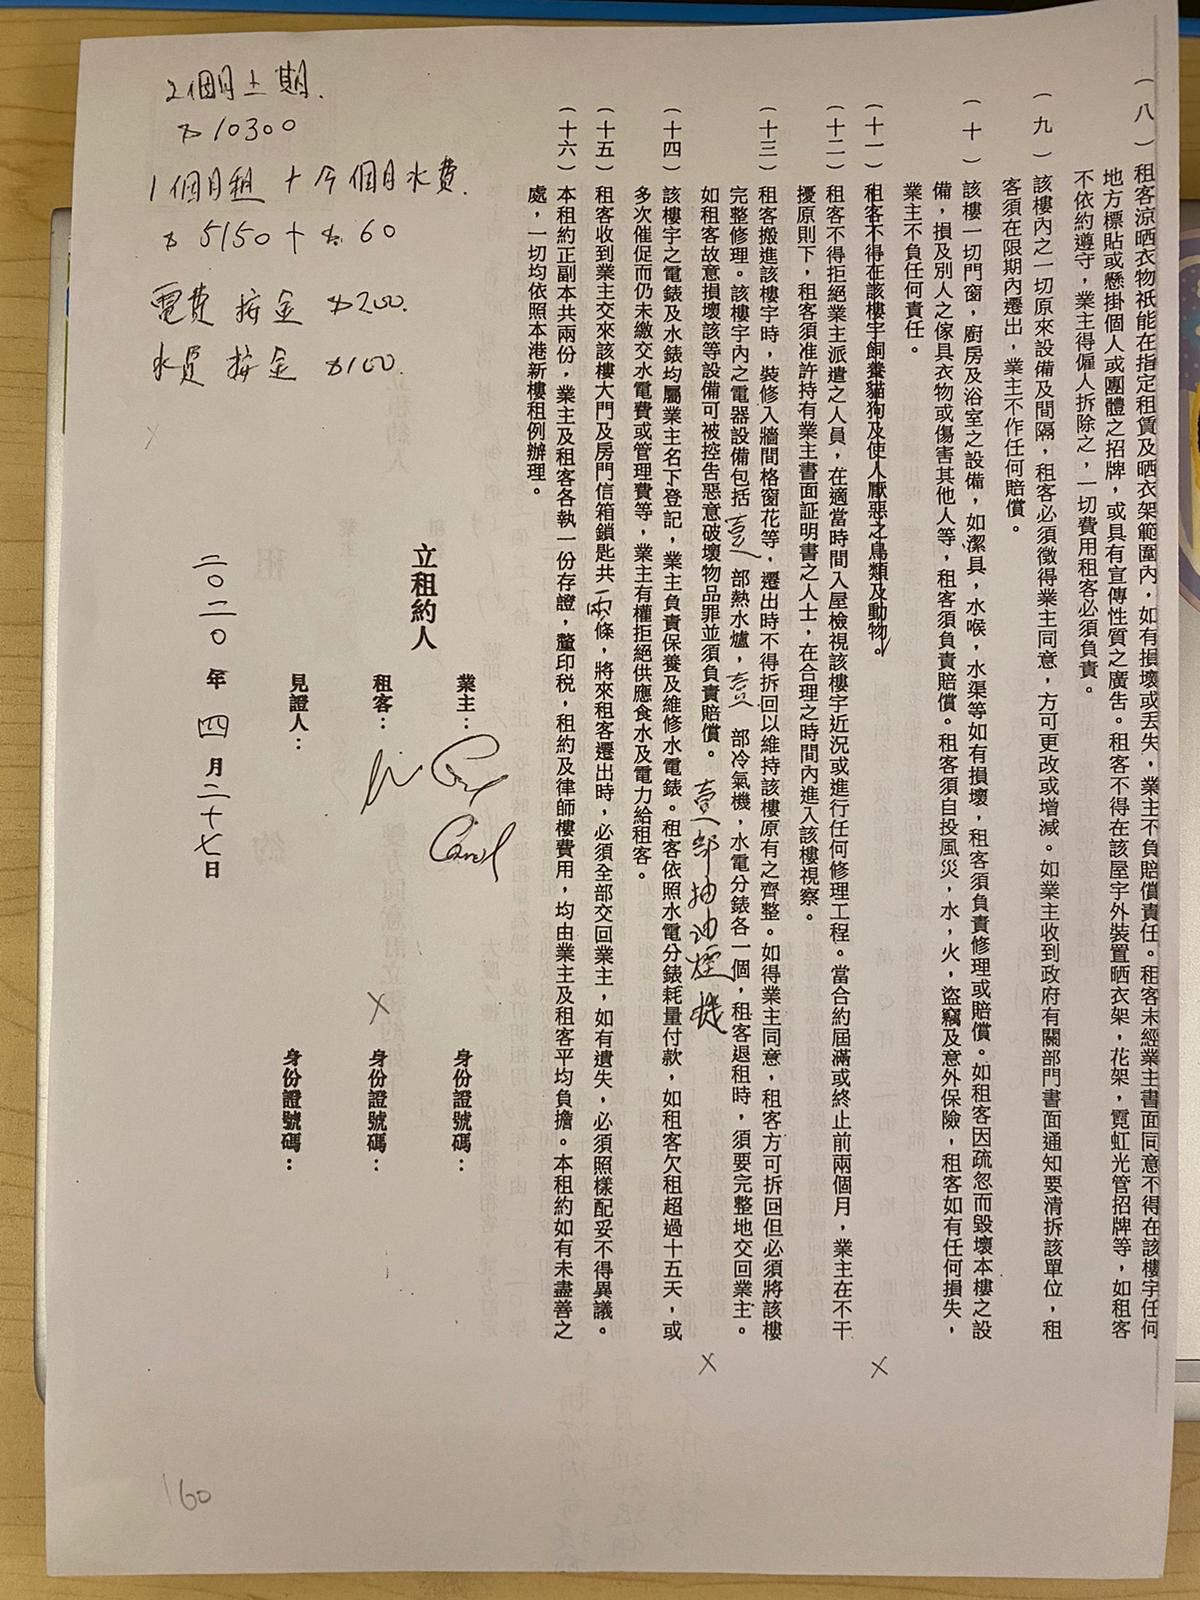 （八）租客涼晒衣物祇能在指定租賃及晒衣架範圍內，如有損壞或丟失，業主不負賠償責任。租客未經業主書面同意不得在該樓宇任何
地方標貼或懸掛個人或團體之招牌，或具有宣傳性質之廣告。租客不得在該屋宇外裝置晒衣架，花架，霓虹光管招牌等，如租客
不依約遵守，業主得僱人拆除之，一切費用租客必須負責。
（九）該樓內之一切原來設備及間隔，租客必須徵得業主同意，方可更改或增減。如業主收到政府有關部門書面通知要清拆該單位，租
客須在限期內遷出，業主不作任何賠償。
（十）該樓一切門窗，廚房及浴室之設備，如潔具，水喉，水渠等如有損壞，租客須負責修理或賠償。如租客因疏忽而毀壞本樓之設
備，損及別人之傢具衣物或傷害其他人等，租客須負責賠償。租客須自投風災，水，火，盜竊及意外保險，租客如有任何損失，
業主不負任何責任。
（十一）租客不得在該樓宇飼養貓狗及使人厭惡之鳥類及動物。
（十二）租客不得拒絕業主派遣之人員，在適當時間入屋檢視該樓宇近況或進行任何修理工程。當合約屆滿或終止前兩個月，業主在不干
擾原則下，租客須准許持有業主書面証明書之人士，在合理之時間內進入該樓視察。
（十三）租客搬進該樓宇時，裝修入牆間格窗花等，遷出時不得拆回以維持該樓原有之齊整。如得業主同意，租客方可拆回但必須將該樓
完整修理。該樓宇內之電器設備包括壹部熱水爐，壹部冷氣機，水電分錶各一個，租客退租時，須要完整地交回業主。
如租客故意損壞該等設備可被控告惡意破壞物品罪並須負責賠償。壹部抽油煙機
（十四）該樓宇之電錶及水錶均屬業主名下登記，業主負責保養及維修水電錶。租客依照水電分錶耗量付款，如租客欠租超過十五天，或
多次催促而仍未繳交水電費或管理費等，業主有權拒絕供應食水及電力給租客。
（十五）租客收到業主交來該樓大門及房門信箱鎖匙共兩條，將來租客遷出時，必須全部交回業主，如有遺失，必須照樣配妥不得異議。
（十六）本租約正副本共兩份，業主及租客各執一份存證，釐印稅，租約及律師樓費用，均由業主及租客平均負擔。本租約如有未盡善之
處，一切均依照本港新樓租例辦理。
立租約人
業主：
Carol
身份證號碼：
租客：
身份證號碼：
見證人：
身份證號碼：
二〇二〇年四月二十七日
2個月上期.
$10300
1個月租 + 今個月水費.
$5150 + $60
電費 按金 $200.
水費 按金 $100.
160